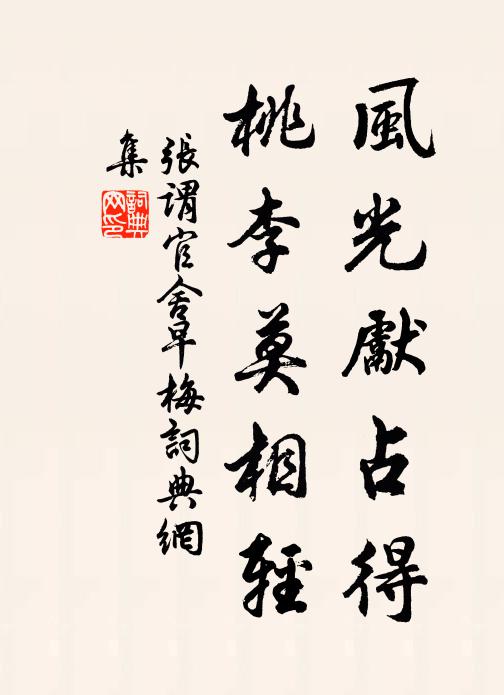 風光獻占得
桃李莫相輕
張謂官舍早梅詞典網
集
詞典网印